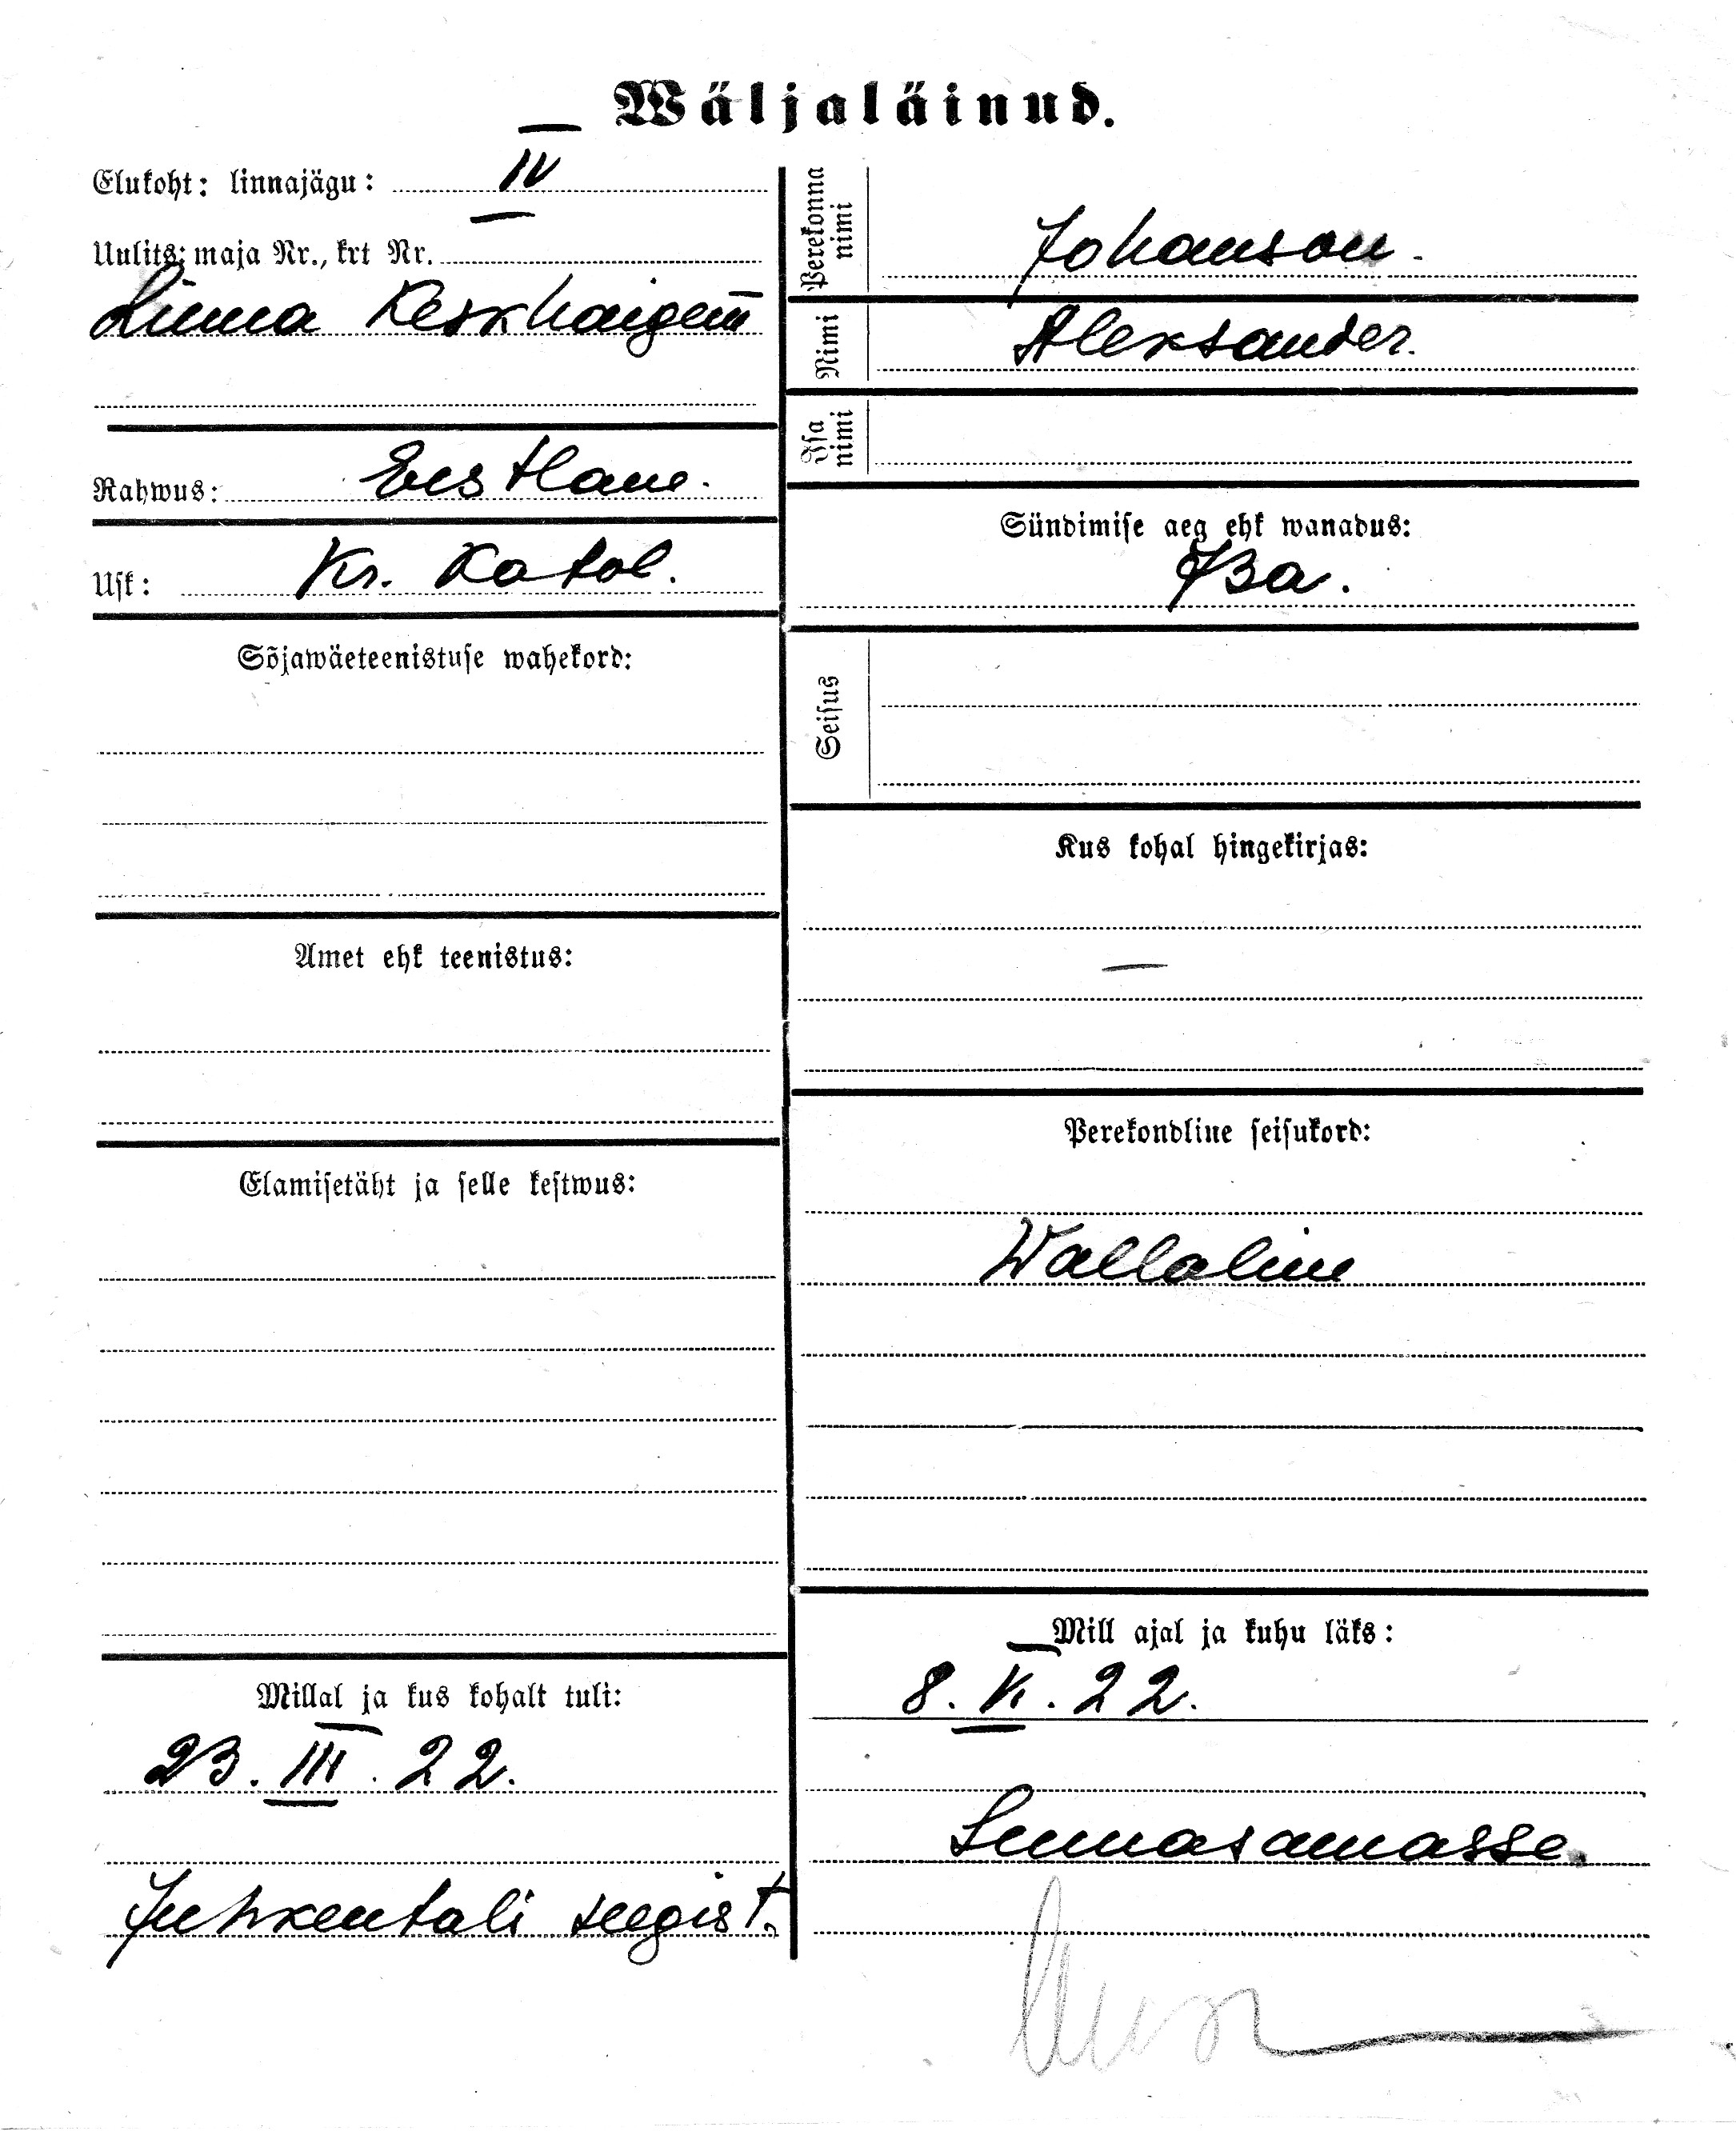 Wäljaläinud.
Elukoht: linnajägu: IV
Uulits: maja Nr., krt Nr.
Linna Keskhaigem
Rahwus: Eestlane.
Usk: Kr. Katol.
Sõjawäeteenistuse wahekord:
Amet ehk teenistus:
Elamisetäht ja selle kestwus:
Millal ja kus kohalt tuli:
23. III. 22.
Juhkentali seegist.
Perekonna nimi
Johanson.
Nimi
Aleksander.
Isa nimi
Sündimise aeg ehk wanadus:
73 a.
Seisus
Kus kohal hingekirjas:
—
Perekondline seisukord:
Wallaline
Mill ajal ja kuhu läks:
8. VI. 22.
Sinnasamasse.